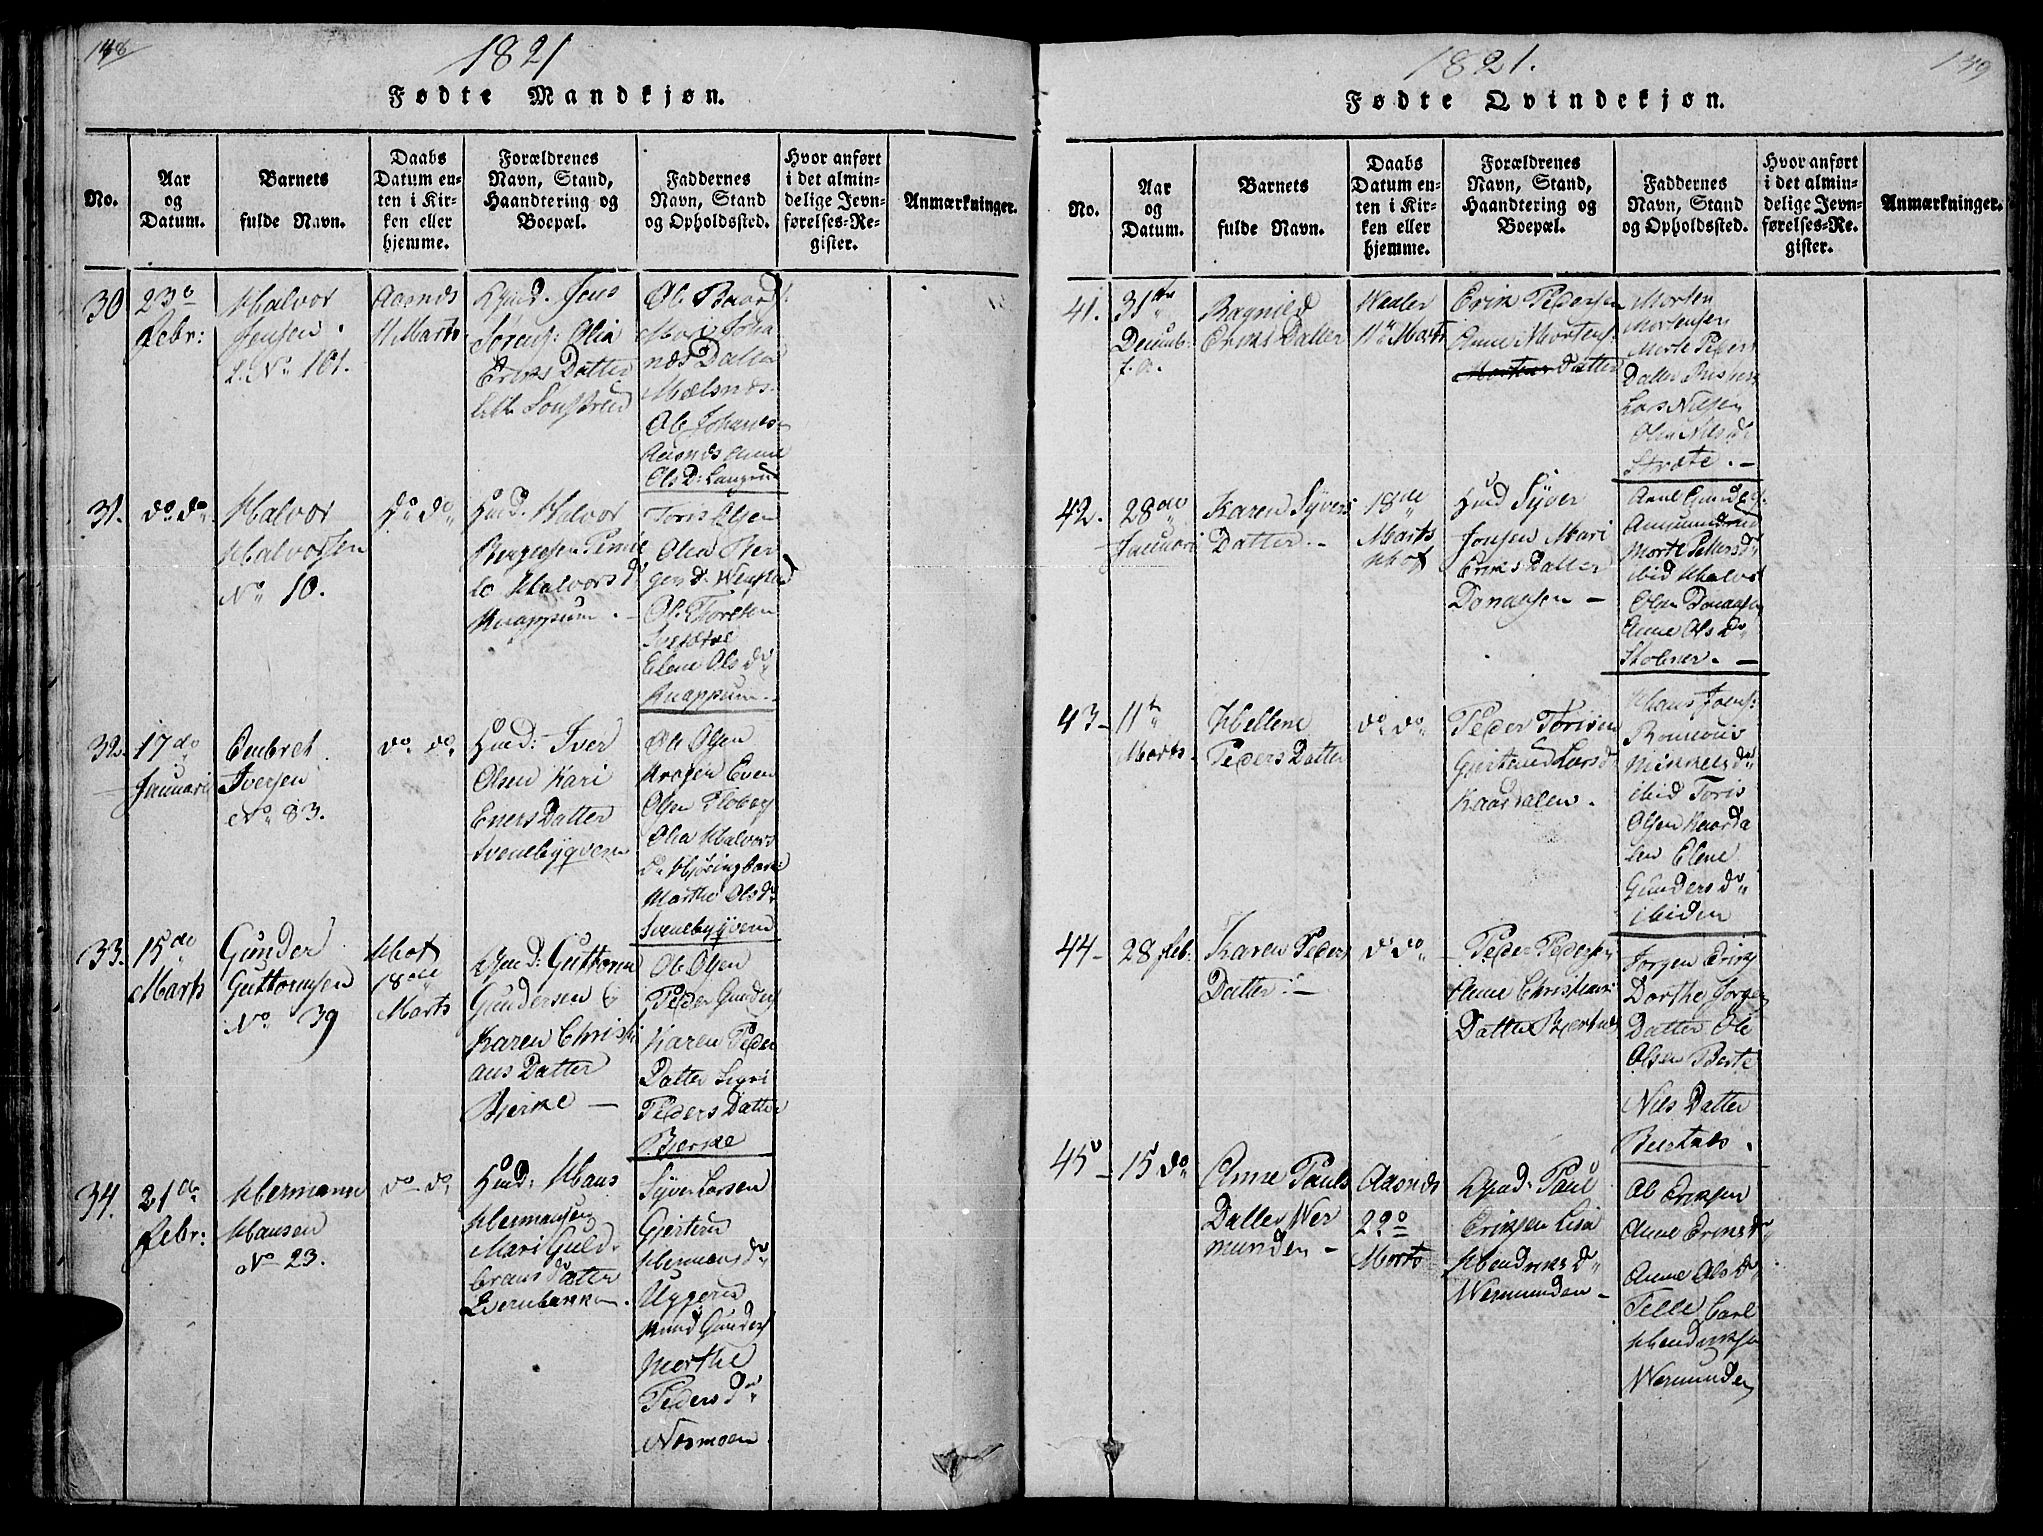 148
1821
Fødte Mandkjøn.
No.
Aar
og
Datum.
Barnets
fulde Navn.
Daabs
Datum en-
ten i Kir-
ken eller
hjemme.
Forældrenes
Navn, Stand,
Haandtering og
Boepæl.
Faddernes
Navn, Stand
og Opholdssted.
Hvor anført
i det almin-
delige Jevn-
førelses-Re-
gister.
Anmærkninger.
30
23
Febr:
Halvor
Jensen.
No 101.
Aasnes
11 Marts
Hmd. Jens
Sørens: Olia
Eriks Datter
Ole Baards:
Mari Joha
nes Datter
Ole Johanes
Aasnes Anne
Ols D:
31.
do do
Halvor
Halvorsen
No 10.
do do
Hmd. Halvor
Halvors d
Knappum.
Toris Olsen
Olea
Ole Toresen
Elene Ols do
Knappum.
32.
17 do
Januari
Embret
Iversen
No 83.
do do
Hmd: Iver
Olsen Kari
Eners Datter
Svenebyqven
Ole Olsen
Even
Olsen Floberg
Olia Halvors
Marthe Ols do
Svenebyqvern
33.
15 de
Marts
Gunder
Guttormsen
No 39
Hof
18 de
Marts
Hmd: Guttorm
Gundersen &
Karen Christi
ans Datter
Bjerke
Ole Olsen
Peder Gunders
Karen Peder
Datter Sigri
Peders Datter
Bjerke
34.
21 de
Febr:
Hermann
Hansen
No 23.
do do
Hmd: Hans
Hermansen
Mari Guld
brans datter
Syver Larsen
Gjertru
Hermans do
Gunders
Merthe
Peders do
Normoen
1821.
149
Fødte Qvindekjøn.
No.
Aar
og
Datum.
Barnets
fulde Navn.
Daabs
Datum en-
ten i Kir-
ken eller
hjemme.
Forældrenes
Navn, Stand,
Haandtering og
Boepæl.
Faddernes
Navn, Stand
og Opholdssted.
Hvor anført
i det almin-
delige Jevn-
førelses-Re-
gister.
Anmærkninger.
41.
31 te
Decemb:
f. A.
Ragnild
Eriks Datter
Waaler
11 Marts
Erik Pedersen
Anne Mortens:
Datter
Morten
Mortensen
Merte Peders
Datter
Lars Nilsen
Olea Nils d:
Stræte.
42.
28 de
Januari
Karen Syvers
Datter.
18 de
Marts
Hof
Hmd Syver
Jonsen Mari
Eriks Datter
Arne Gunders:
Merte Peders d
ibid Halvor
Olsen
Anne Ols do
43
11 te
Marts.
Hellene
Peders Datter
do do
Peder Torisen
Gjertrud Lars d
Kaardalen.
Hans Joens:
Mikkels do
ibid Toris
Olsen Kaarda
len Elene
Gunders do
ibiden
44
28 Feb:
Karen Peders
Datter:
do do
Peder Pedersen
Anne Christians
Datter
Jørgen Eriks
Dorthe Jørgen
Datter Ole
Olsen Berte
Nils Datter
45
15 do
Anne Pauls
Datter Wer
munden
Aasnes
22
Marts
Hmd: Paul
Eriksen Lisa
Hendriks d
Wermunden
Ole Eriksen
Anne Eriks do
Anne Ols do
Telle Carl
Hendriksen
Wermunden